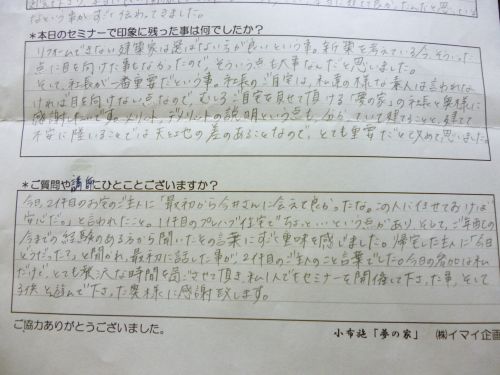 なという事がすごく伝わってきました。
*本日のセミナーで印象に残った事は何でしたか?
リフォームできない建築家は選ばない方が良いという事。新築を考えている今、そういった
点に目を向けた事もなかったので、そういう点も大事なんだと思いました。
そして、社長が一番重要だという事。社長のご自宅は、私達の様な素人は言われな
ければ目を向けない点なので、ご自宅を見せて頂ける「夢の家」の社長と奥様に
感謝したいです。メリット、デメリットの説明という点も、分かっていて建てることと、建てて
不安に陥いることでは天と地の差のあることなので、とても重要だと改めて思いました。
*ご質問や講師にひとことございますか?
今日、2件目のお宅のご主人に「最初から今井さんに会えて良かったな。この人に任せておけば
安心だ。」と言われたこと。1件目のプレハブ住宅でちょっと…という点があり、そして、ご年配の
今までの経験のある方から聞いたその言葉にすごく重味を感じました。帰宅した主人に「今日
どうだった?」と聞かれ、最初に話した事が、2件目のご主人のこと言葉でした。今日の参加は私
だけで、とても贅沢な時間を過ごさせて頂き、私1人でもセミナーを開催して下さった事、そして
子供と遊んで下さった奥様に感謝致します。
ご協力ありがとうございました。
小布施「夢の家」 ㈱イマイ企画